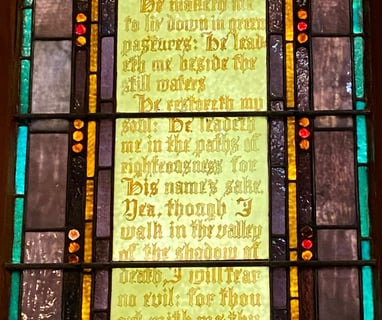 He maketh me
to lie down in green
pastures: He lead-
eth me beside the
still waters
He restoreth my
soul: He leadeth
me in the paths of
righteousness for
His name's sake.
Yea, though I
walk in the valley
of the shadow of
death, I will fear
no evil: for thou
art with me thy